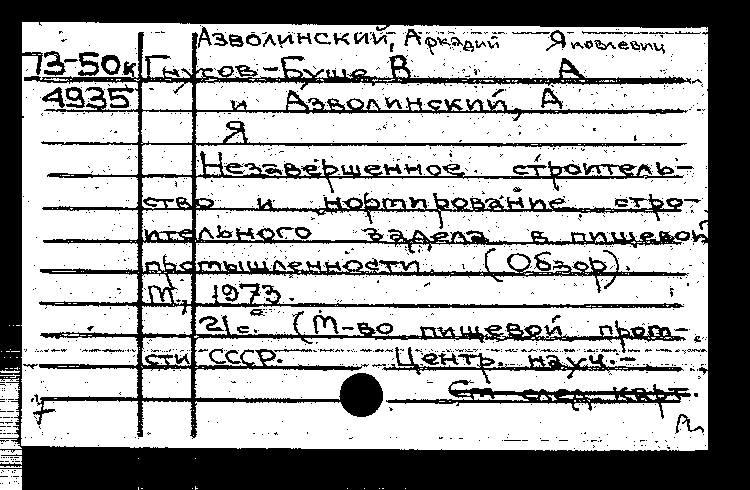 Азволинский, Аркадий Яковлевич
73-50к Гнусов-Буше В А
4935 и Азволинский, А
Я
Незавершенное строитель-
ство и нормирование стро-
ительного задела в пищевой
промышленности. (Обзор).
М., 1973.
21 с. (М-во пищевой пром-
сти СССР. Центр. науч.-
См след. карт.